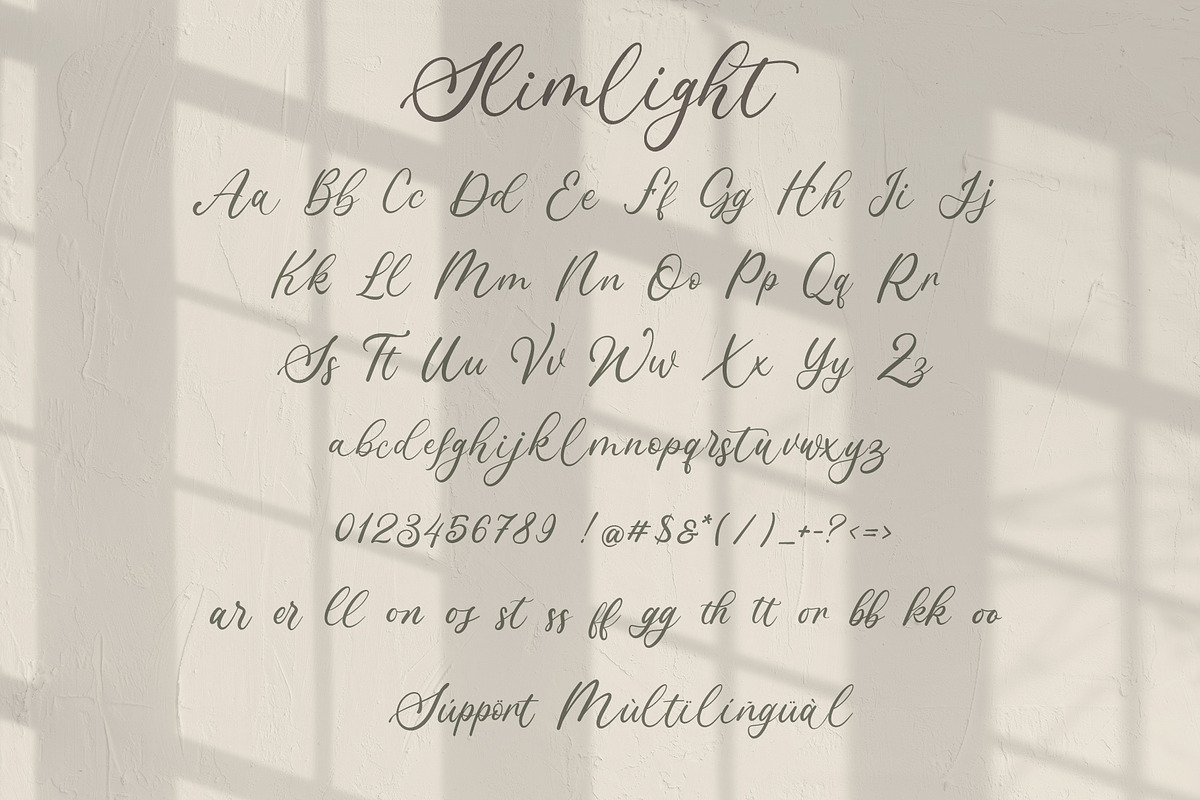 Slimlight
Aa Bb Cc Dd Ee Ff Gg Hh Ii Jj
Kk Ll Mm Nn Oo Pp Qq Rr
Ss Tt Uu Vv Ww Xx Yy Zz
abcdefghijklmnopqrstuvwxyz
0123456789 !@#$&*(/)_+-?<=>
ar er ll on os st ss ff gg th tt or bb kk oo
Súppört Mùltïlíngüàl